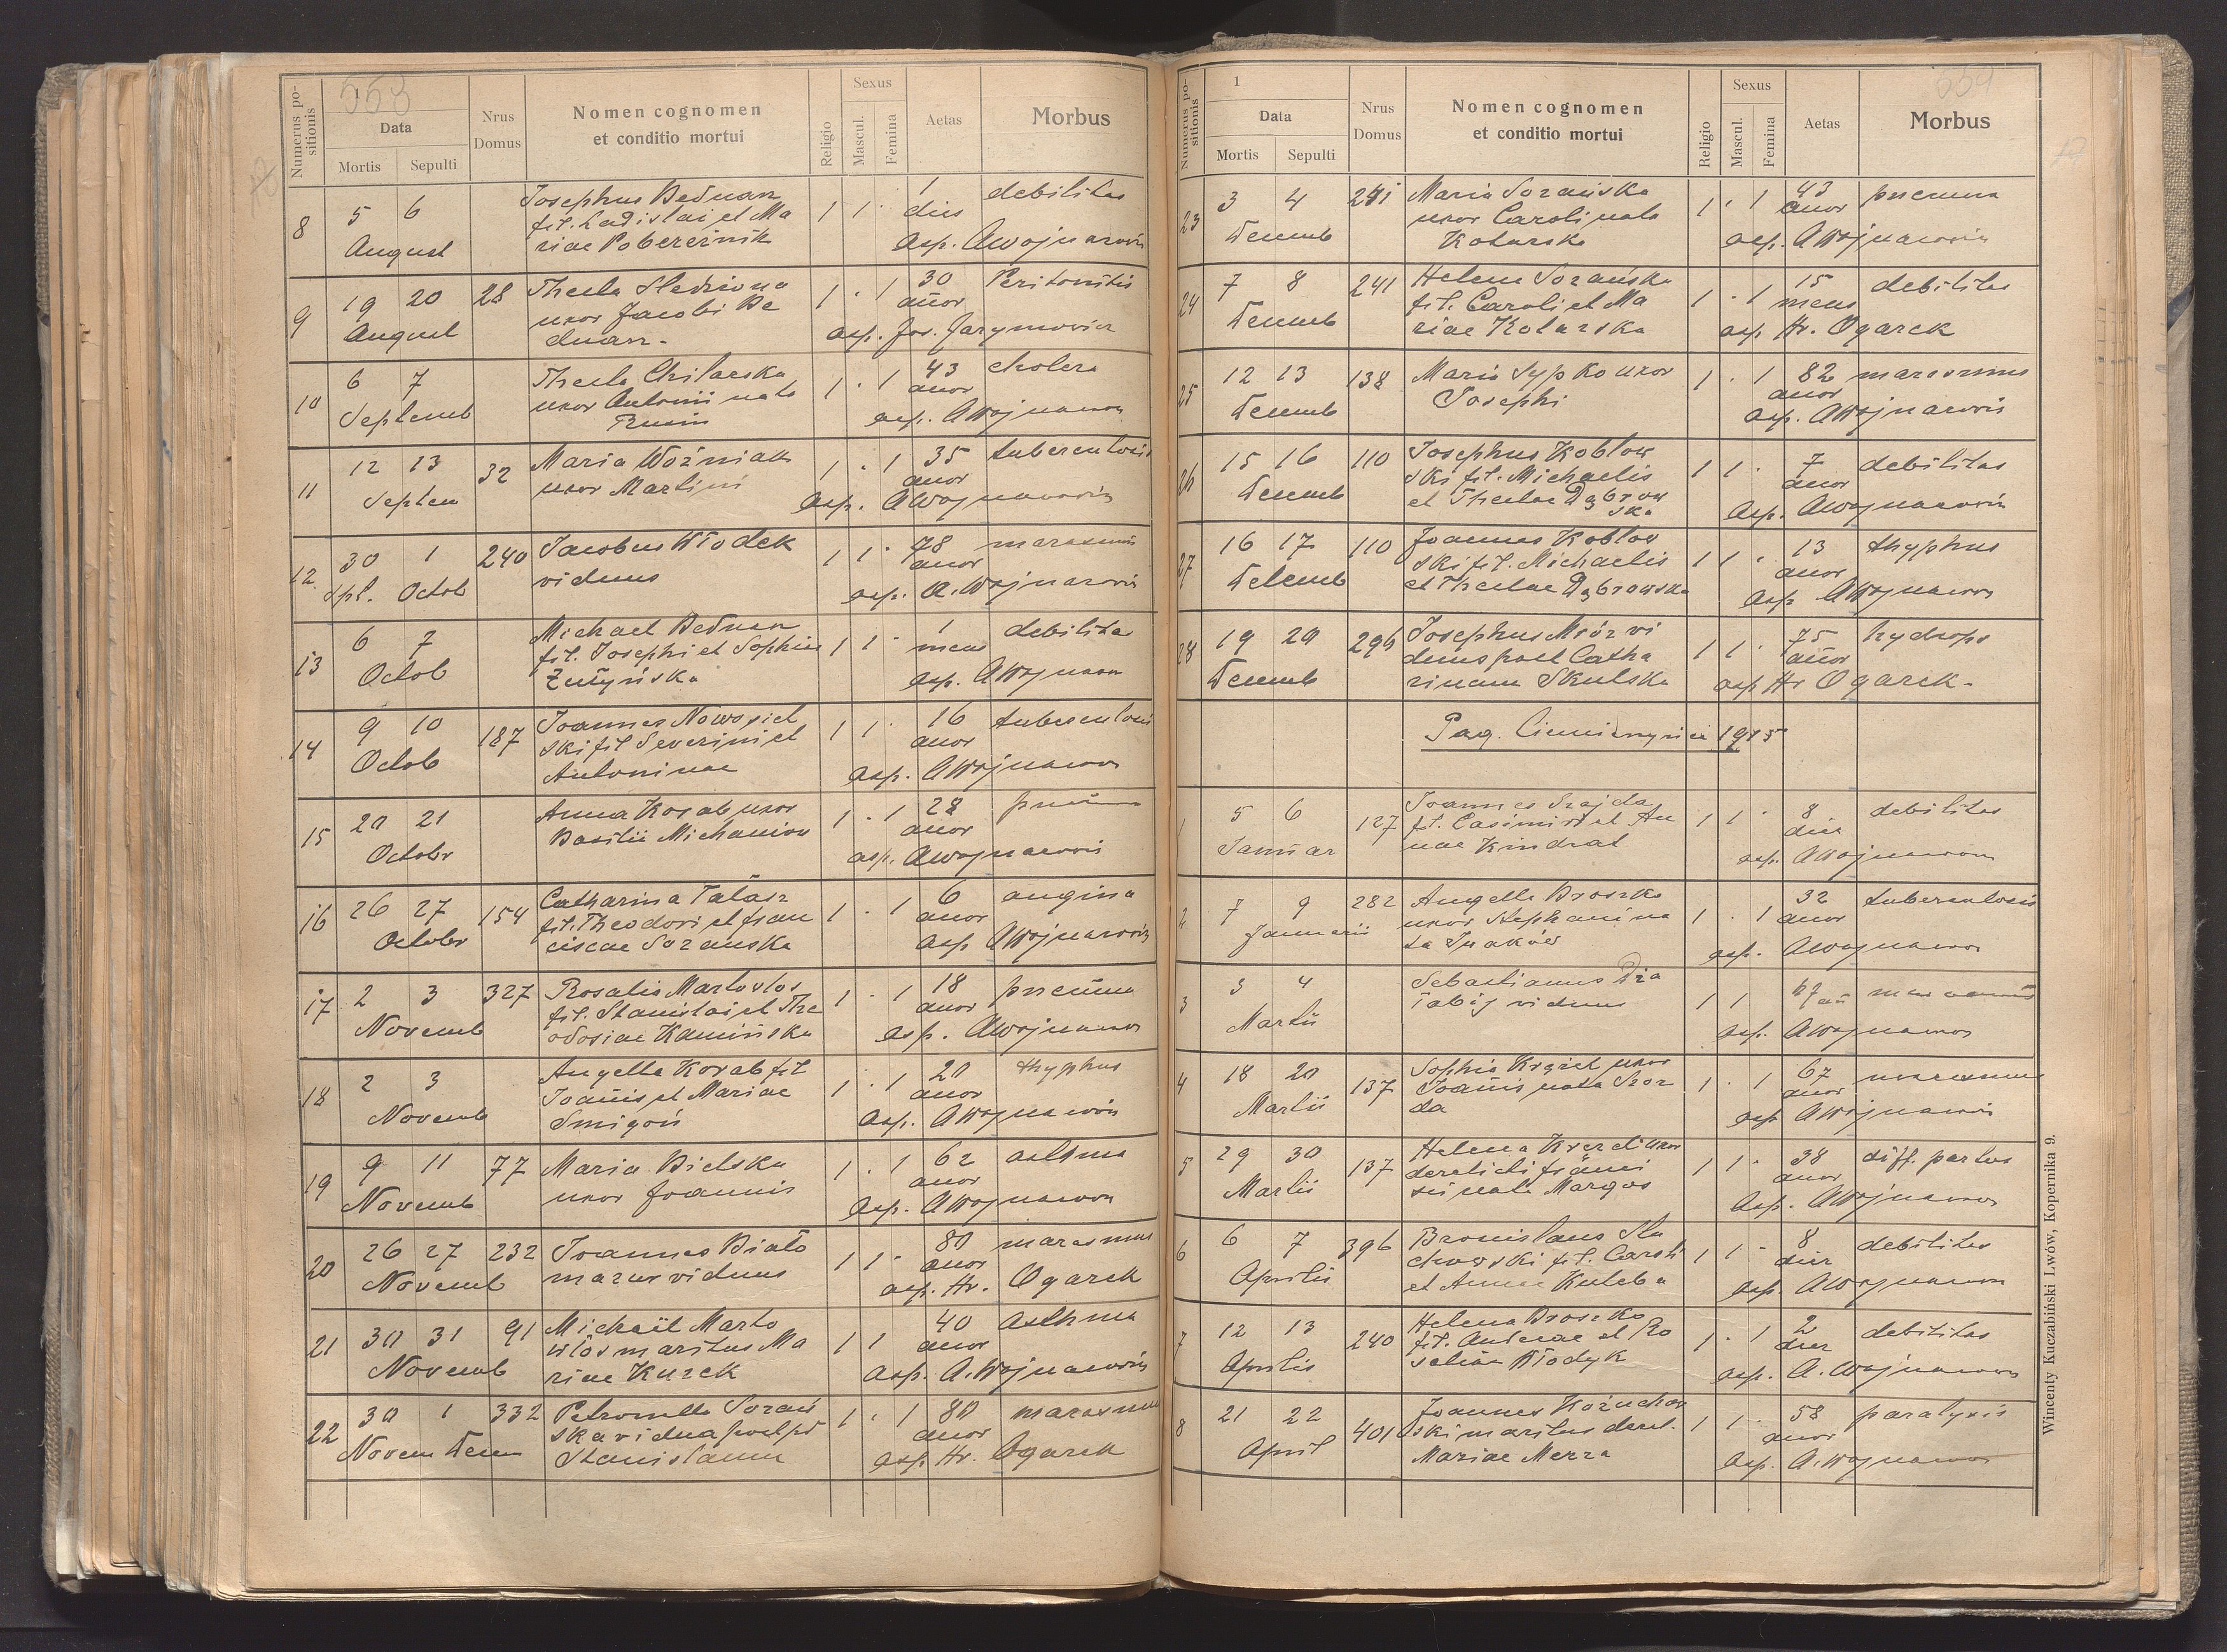 558
Numerus positionis
1
Data
Mortis Sepulti
Nrus Domus
Nomen cognomen
et conditio mortui
Religio
Sexus
Mascul.
Femina
Aetas
Morbus
8 5 6 Josephus Bednarz 1 1 · 1 debilitas
fil. Ladislai et Ma dies
August riae Pobereżnik asp. AWojnarowicz
9 19 20 28 Thecla Sledziona 1 · 1 30 Peritonitis
August uxor Jacobi Be anor
dnarz - asp. Jos. Jarymowicz
10 6 7 Thecla 1 · 1 43 cholera
Septemb uxor Antonii nata anor
Rusin asp. AWojnarow
11 12 13 32 Maria Woźniak 1 · 1 35 tuberculosis
Septem uxor Martini anor
asp. AWojnarowicz
12. 30 1 240 Jacobus Włodek 1 1 · 78 marasmus
Spt. Octob viduus anor
asp. A. Wojnarowicz
13 6 7 Michael Bednarz 1 1 · 1 debilitas
fil. Josephi et Sophiae mens
Octob asp. AWojnarow
14 9 10 187 Joannes Nowosiel 1 1 · 16 tuberculosis
ski fil Severini et anor
Octob Antoninae asp. AWojnarow
15 20 21 Anna Korab uxor 1 · 1 28
Octobr Basilii anor
asp. AWojnarowicz
16 26 27 154 Catharina Tatasz 1 · 1 6 angina
fil. Theodori et Fran anor
Octobr ciscae Sozanska asp AWojnarowicz
17 2 3 327 Rosalia Martowlos 1 · 1 18 pneumo
fil. Stanislai et The anor
Novemb odosiae Kamińska asp. AWojnarow
18 2 3 Angella Korab fil 1 · 1 20 thyphus
Joañis et Mariae anor
Novemb Smigoń asp. AWojnarowicz
19 9 11 77 Maria Bielska 1 · 1 62 asthma
Novemb uxor Joannis anor
asp. AWojnarow
20 26 27 232 Joannes Biało 1 1 · 80 marasmus
Novemb mazur viduus anor
asp. Hr. Ogarek
21 30 31 91 Michaël Marto 1 1 40 Asthma
wlos maritus Ma anor
Novemb riae Kurek asp. A. Wojnarowicz
22 30 1 332 Petronella Sozań 1 · 1 80 marasmus
ska vidua post anor
Novem Decem Stanislaum asp. Hr. Ogarek
559
Numerus positionis
1
Data
Mortis Sepulti
Nrus Domus
Nomen cognomen
et conditio mortui
Religio
Sexus
Mascul.
Femina
Aetas
Morbus
23 3 4 241 Maria Sozańska 1 · 1 43 pneumo
uxor Caroli nata anor
Decemb Kotarska asp. AWojnarowicz
24 7 8 241 Helena Sozańska 1 · 1 15 debilitas
fil. Caroli et Ma mens
Decemb riae Kotarska asp Hr. Ogarek
25 12 13 138 Maria Sypko uxor 1 · 1 82 marasmus
Decemb Josephi anor
asp. AWojnarowicz
26 15 16 110 Josephus Kobłow 1 1 · 7 debilitas
ski fil. Michaelis anor
Decemb et Theclae Dąbrow
ska asp. AWojnarowicz
27 16 17 110 Joannes Kobłow 1 1 · 13 thyphus
ski fil. Michaelis anor
Decemb et Theclae Dąbrowska asp AWojnarow
28 19 20 296 Josephus Mróz vi 1 1 · 75 hydrops
duus post Catha anor
Decemb rinam Skulska asp Hr Ogarek -
Pag. 1915
1 5 6 127 Joannes Szajda 1 1 · 8 debilitas
fil. Casimiri et An dies
Januar nae Kindrat asp. AWojnarow
2 7 9 282 Angella Broszko 1 · 1 32 tuberculosis
Januarii uxor Stephani na anor
ta asp. AWojnarow
3 3 4 Sebastianus Dra 1 1 67
Martii viduus asp. AWojnarow
4 18 20 137 Sophia uxor 1 · 1 67 marasmus
Joañis nata anor
Martii da asp AWojnarowicz
5 29 30 137 Helena uxor 1 1 · 38 diff. partus
derelicti anor
Martii nata Margos asp. AWojnarow
6 6 7 396 Bronislaus Sta 1 1 · 8 debilitas
chowski fil. Caroli dier
Aprilis et Annae Kuleba asp. AWojnarow
7 12 13 240 Helena Broszko 1 · 1 2 debilitas
fil. Andreae et Ro dier
Aprilis saliae Włodyk asp. A. Wojnarow
8 21 22 401 Joannes Kożuchow 1 1 · 58 paralysis
ski maritus derel. anor
April Mariae Merza asp. A. Wojnarow
Wincenty Kuczabiński Lwów, Kopernika 9.